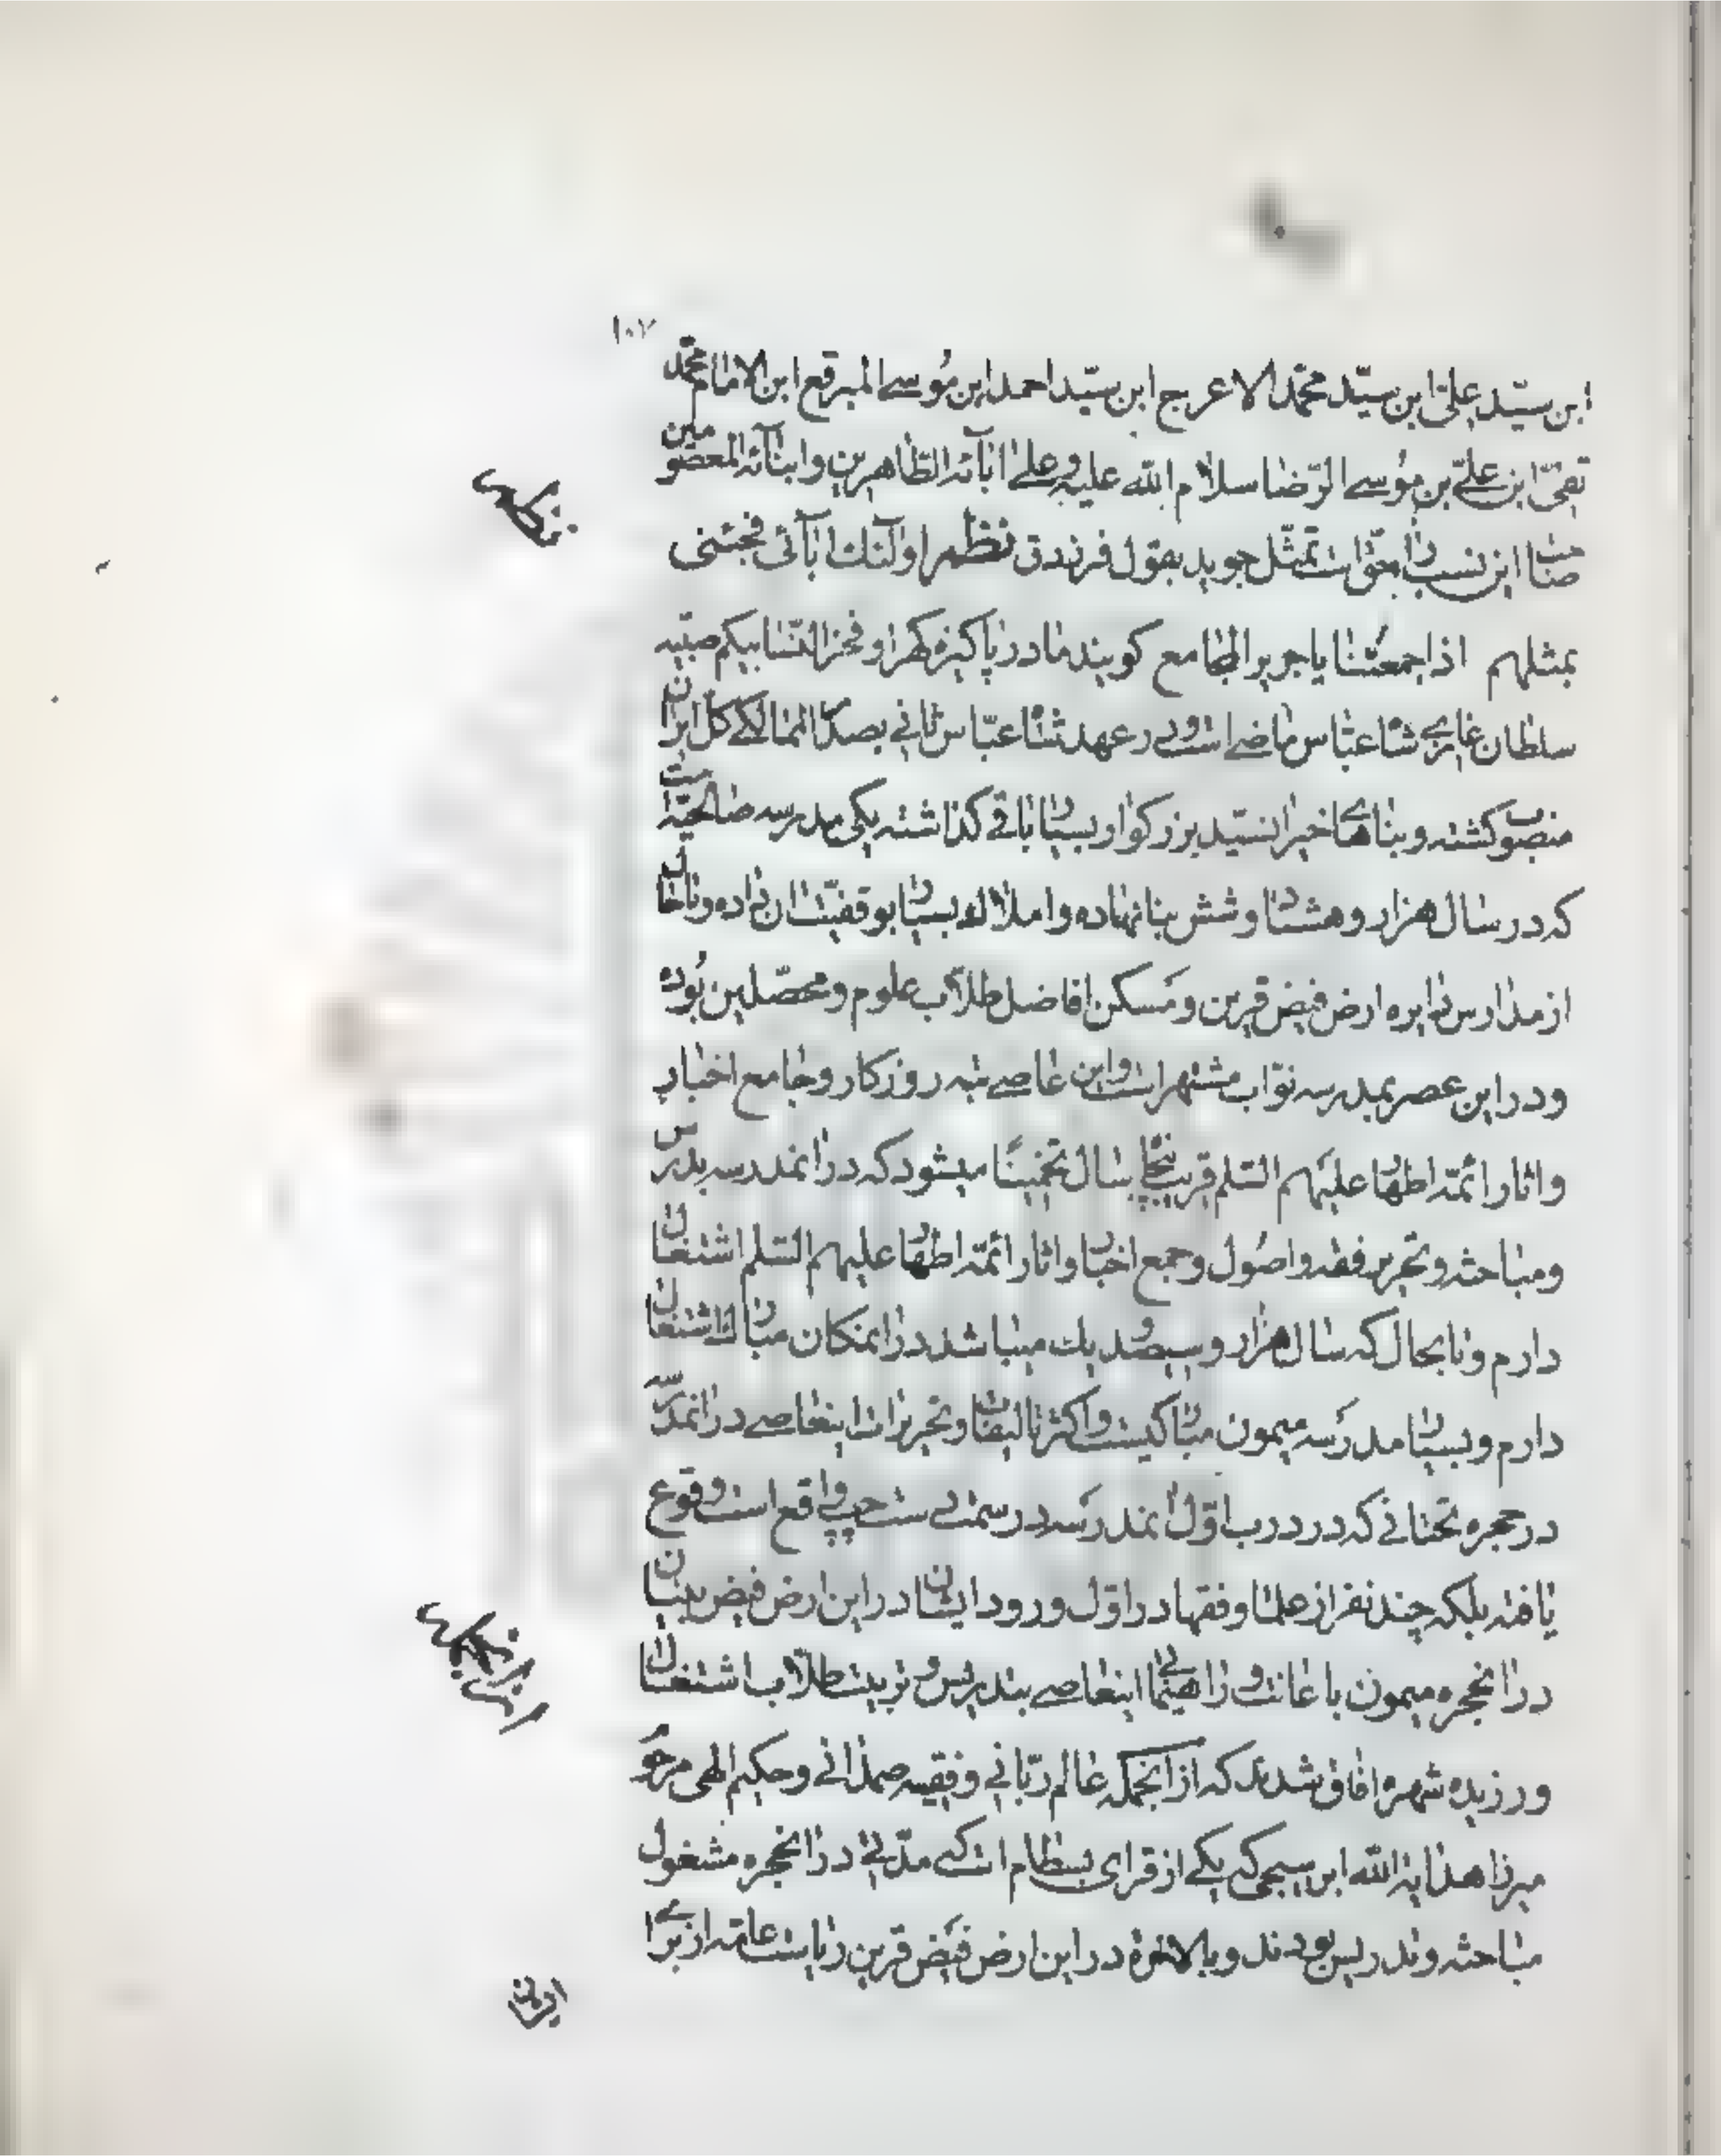 ۱۰۷
ابن سیّد علیّ ابن سیّد محمّد الاعرج ابن سیّد احمد ابن مُوسی المبرقع ابن الامام محمّد
تقیّ ابن علیّ بن مُوسی الرّضا سلام الله علیه و علی اٰبآئه الطّاهرین و ابنآئه المعصومین
صاحب این نسب را بجاست تمثّل جوید بقول فرزدق نظم اولٰئک اٰبآئی فجئنی
نظم
بمثلهم اذا جمعتنا یا جریر المجامع گویند مادر پاکیزه گهر او فخر النّسا بیگم صبیّه
سلطان غازی شاه عباس ماضی است و در عهد شاه عبّاس ثانی بصدر الممالکی کل ایران
منصوب گشته و بناهای خیر انسیّد بزرگوار بسیار باقی گذاشته یکی مدرسه صالحیّه است
که در سال هزار و هشتاد و شش بنا نهاده و املاک بسیار بوقفیّت ان داده و تا حال
از مدارس دایره ارض فیض قرین و مَسکن افاضل طلاّب علوم و محصّلین بُوده
و در این عصر بمدرسه نوّاب مشتهر است و این عاصی تبه روزکار و جامع اخبار
و اثار ائمّه اطهار علیَهم السّلم قریب پنجاه سال تخمینًا میشود که در انمدرسه بدرس
و مباحثه و تحریر فقه و اصُول و جمع اخبار و اثار ائمّه اطهار علیهم السّلم اشتغال
دارم و تا بحال که سال هزار و سیصد یک میباشد در انمکان مبارک اشتغال
دارم و بسیار مدرَسه میمون مبارکیست و اکثر تالیفات و تحریرات اینعاصی در انمدرسه
در حجره تحتانی که در درب اوّل انمدرَسه در سمت دست چپ واقع است وقوع
یافته بلکه چند نفر از علما و فقها در اوّل ورود ایشان در این ارض فیض بنیان
در انحجره میمون با عانت و راهنمائی اینعاصی بتدریس و تربیت طلاّب اشتغال
ورزیده شهره افاق شدند که از انجمله عالم ربّانی و فقیه صمدانی و حکیم الهی مرحوم
از انجمله
میرزا هدایة الله ابرسیجی که یکی از قرای بسطام است که مدّتی در انحجره مشغول
مباحثه و تدریس بودند و بالاخرة در این ارض فیَض قرین ریاست عامّه از برای